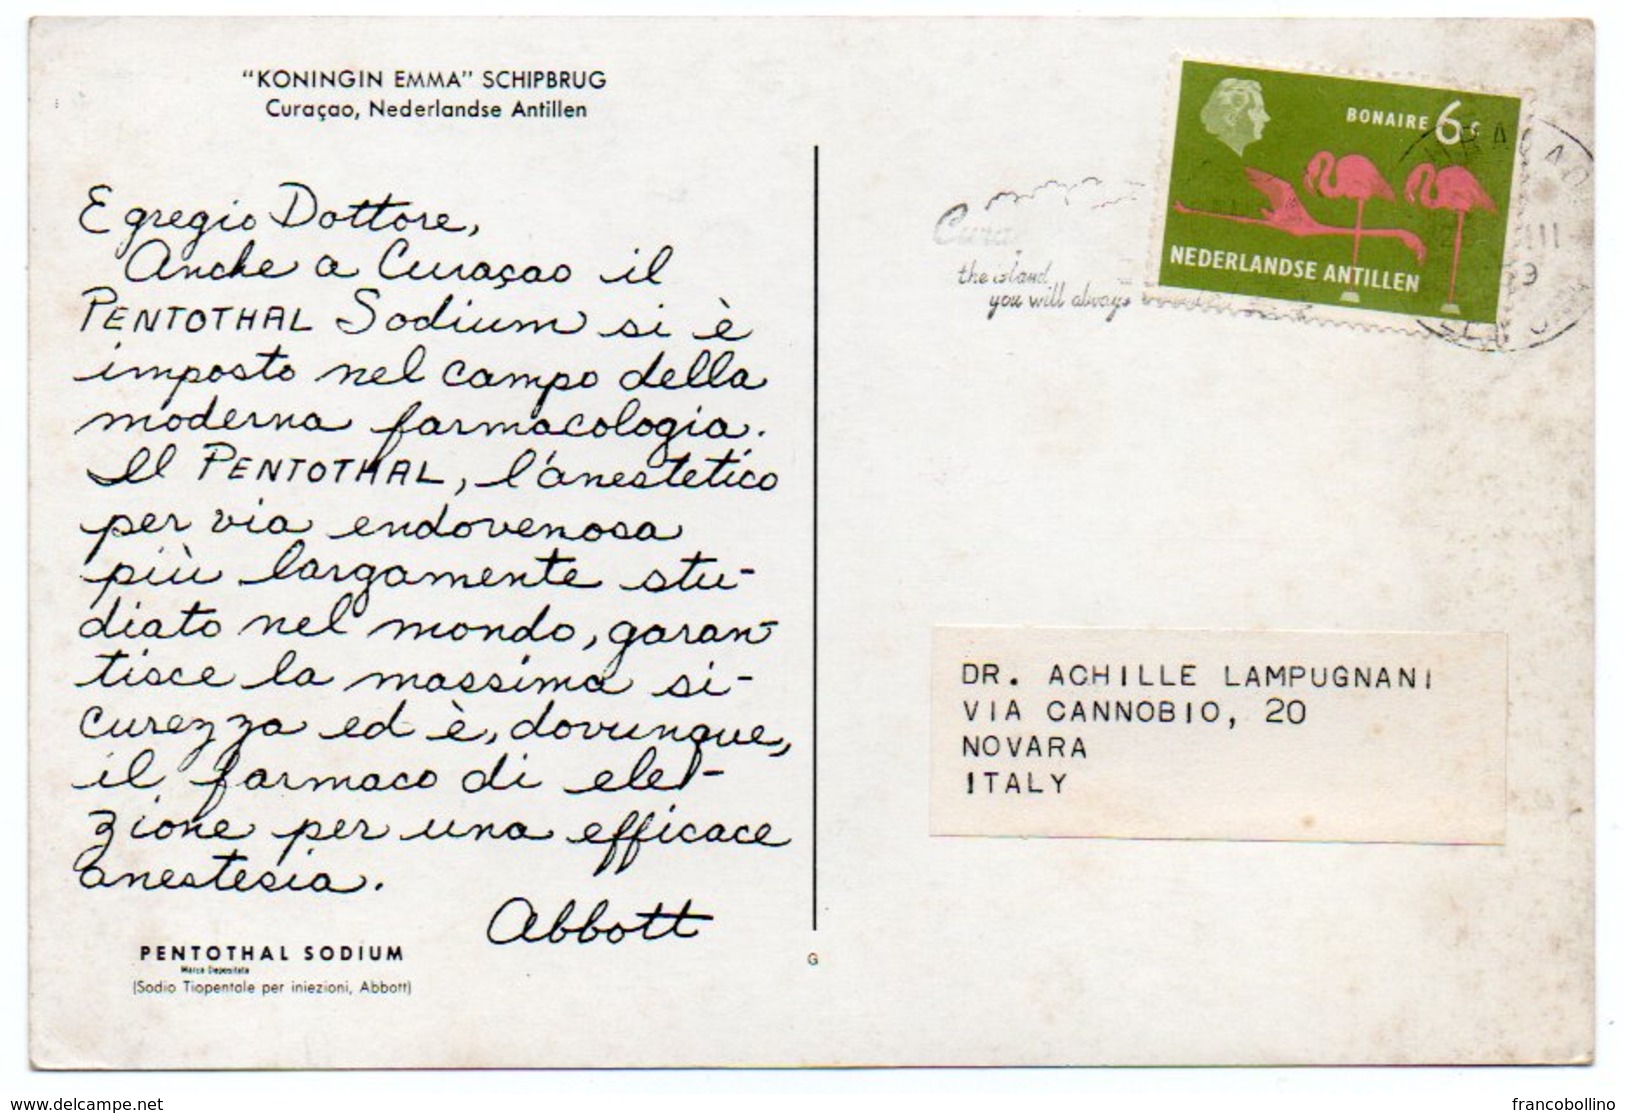 "KONINGIN EMMA" SCHIPBRUG
Curaçao, Nederlandse Antillen
Egregio Dottore,
Anche a Curaçao il
PENTOTHAL Sodium si è
imposto nel campo della
moderna farmacologia.
Il PENTOTHAL, l'anestetico
per via endovenosa
più largamente stu-
diato nel mondo, garan-
tisce la massima si-
curezza ed è, dovunque,
il farmaco di ele-
zione per una efficace
anestesia.
Abbott
PENTOTHAL SODIUM
Marca Depositata
(Sodio Tiopentale per iniezioni, Abbott)
G
BONAIRE 6 c
NEDERLANDSE ANTILLEN
Cura
the island
you will always
DR. ACHILLE LAMPUGNANI
VIA CANNOBIO, 20
NOVARA
ITALY
www.delcampe.net
francobollino